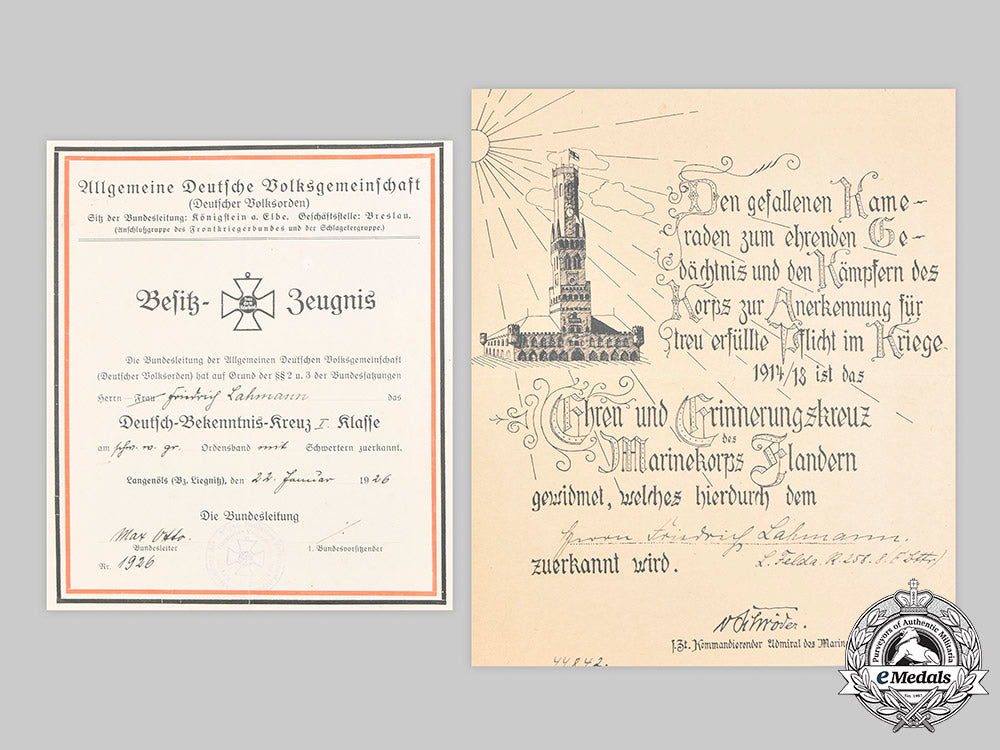 Allgemeine Deutsche Volksgemeinschaft
(Deutscher Volksorden)
Sitz der Bundesleitung: Königstein a. Elbe. Geschäftsstelle: Breslau.
(Anschlußgruppe des Frontkriegerbundes und der Schlagetergruppe.)
Besitz- Zeugnis
Die Bundesleitung der Allgemeinen Deutschen Volksgemeinschaft
(Deutscher Volksorden) hat auf Grund der §§ 2 u. 3 der Bundessatzungen
Herrn Frau Friedrich Lahmann das
Deutsch-Bekenntnis-Kreuz I. Klasse
am schw. w. gr. Ordensband mit Schwertern zuerkannt.
Langenöls (Bz. Liegnitz), den 22. Januar 1926
Die Bundesleitung
Max Otto.
Bundesleiter 1. Bundesvorsitzender
Nr. 1926
Den gefallenen Kame-
raden zum ehrenden Ge-
dächtnis und den Kämpfern des
Korps zur Anerkennung für
treu erfüllte Pflicht im Kriege
1914/18 ist das
Ehren und Erinnerungskreuz
des
Marinekorps Flandern
gewidmet, welches hierdurch dem
Herrn Friedrich Lahmann.
zuerkannt wird.
v Schröder.
z. Zt. Kommandierender Admiral des Marin
44842.
Purveyors of Authentic Militaria
eMedals